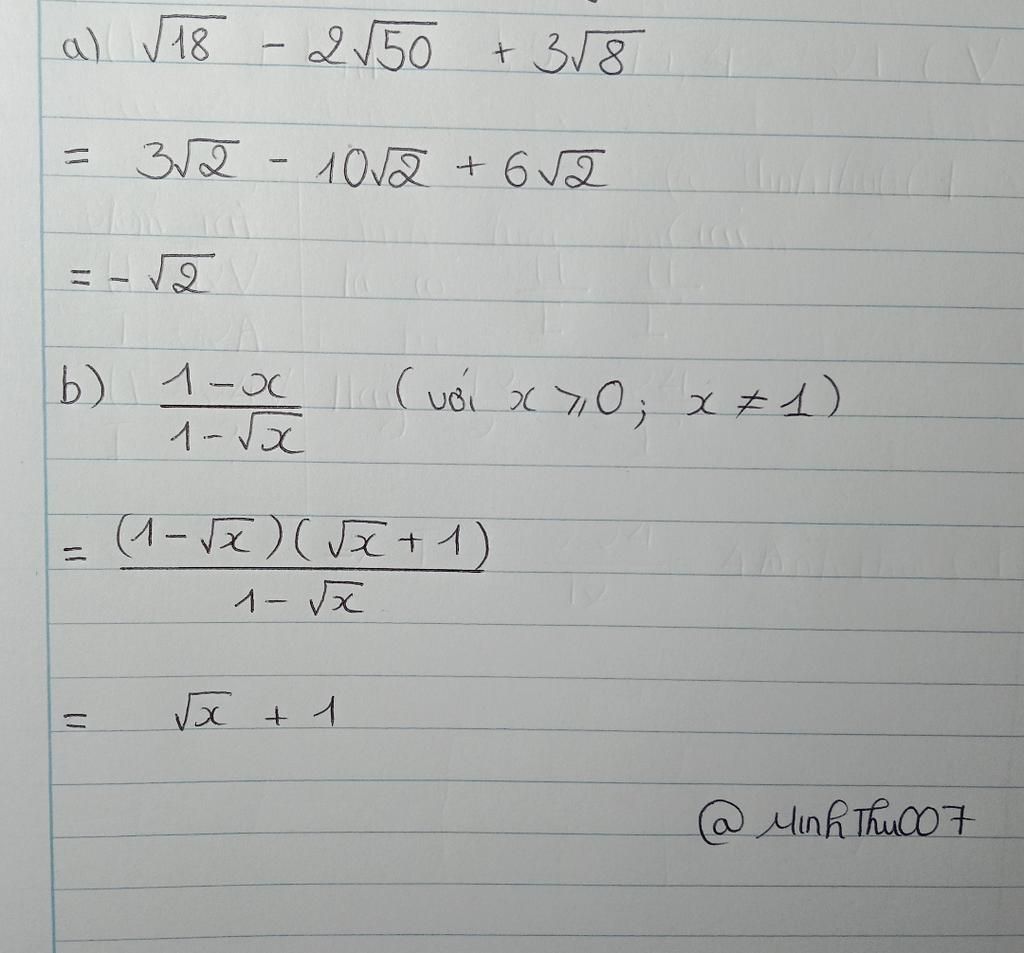 a) √18 - 2√50 + 3√8
= 3√2 - 10√2 + 6√2
= - √2
b) (1 - x)/(1 - √x) (với x ⩾ 0; x ≠ 1)
= ((1 - √x)(√x + 1))/(1 - √x)
= √x + 1
@MinhThu007